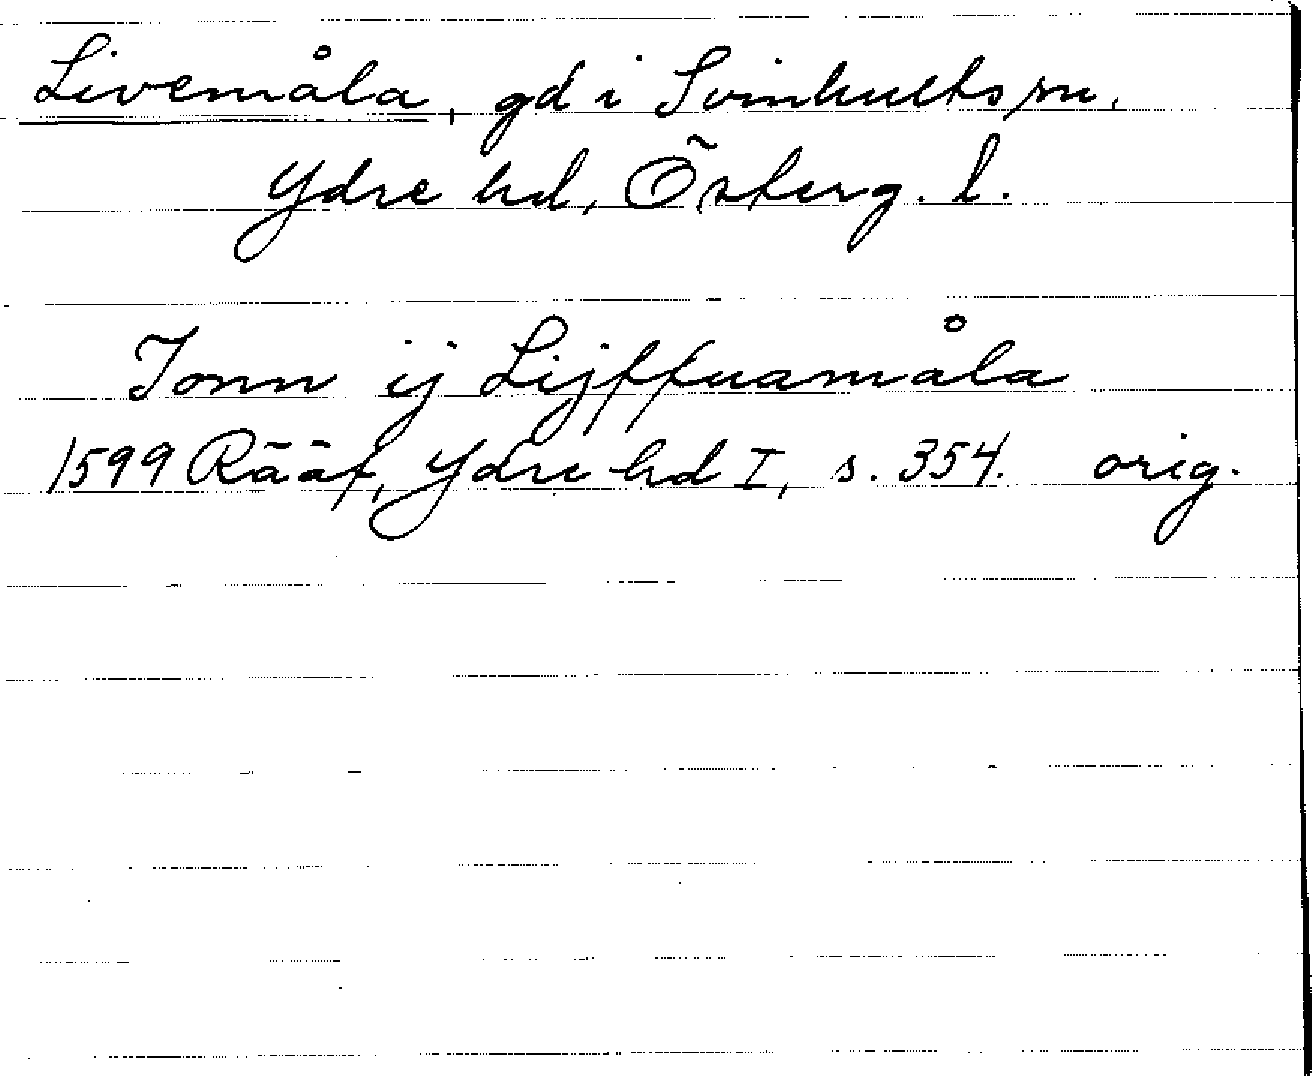 Livemåla, gd i Svinhults sn.
Ydre hd, Österg. l.
Jonn ij Lijffuamåla
1599 Rääf, Ydre hd I, s. 354. orig.